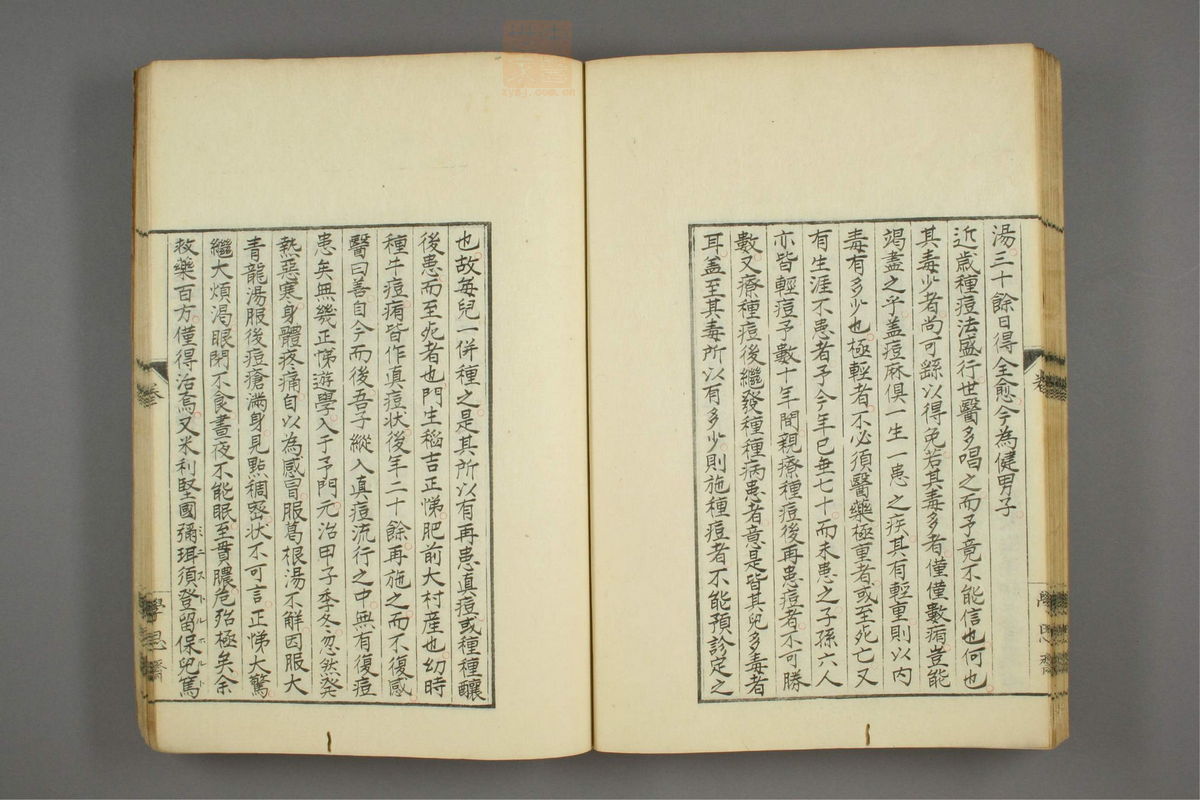 湯三十餘日得全愈今為健男子
近歲種痘法盛行世醫多唱之而予竟不能信也何也
其毒少者尚可繇以得免若其毒多者僅僅數痏豈能
竭盡之乎蓋痘麻俱一生一患之疾其有輕重則以內
毒有多少也極輕者不必須醫藥極重者或至死亡又
有生涯不患者予今年已垂七十而未患之子孫六人
亦皆輕痘予數十年間親療種痘後再患痘者不可勝
數又療種痘後繼發種種病患者意是皆其兒多毒者
耳蓋至其毒所以有多少則施種痘者不能預診定之
也故每兒一併種之是其所以有再患真痘或種種釀
後患而至死者也門生稲吉正悌肥前大村産也幼時
種牛痘痏皆作真痘狀後年二十餘再施之而不復感
醫曰善自今而後吾子縱入真痘流行之中無有復痘
患矣無幾正悌遊學入于予門元治甲子季冬忽然發
熱惡寒身體疼痛自以為感冒服葛根湯不解因服大
青龍湯服後痘瘡滿身見點稠密狀不可言正悌大驚
繼大煩渴眼閉不食晝夜不能眠至貫膿危殆極矣余
救藥百方僅得治焉又米利堅國彌珥須登留保兒篤
ミニストルホルト
卷
學思齋
zysj.com.cn